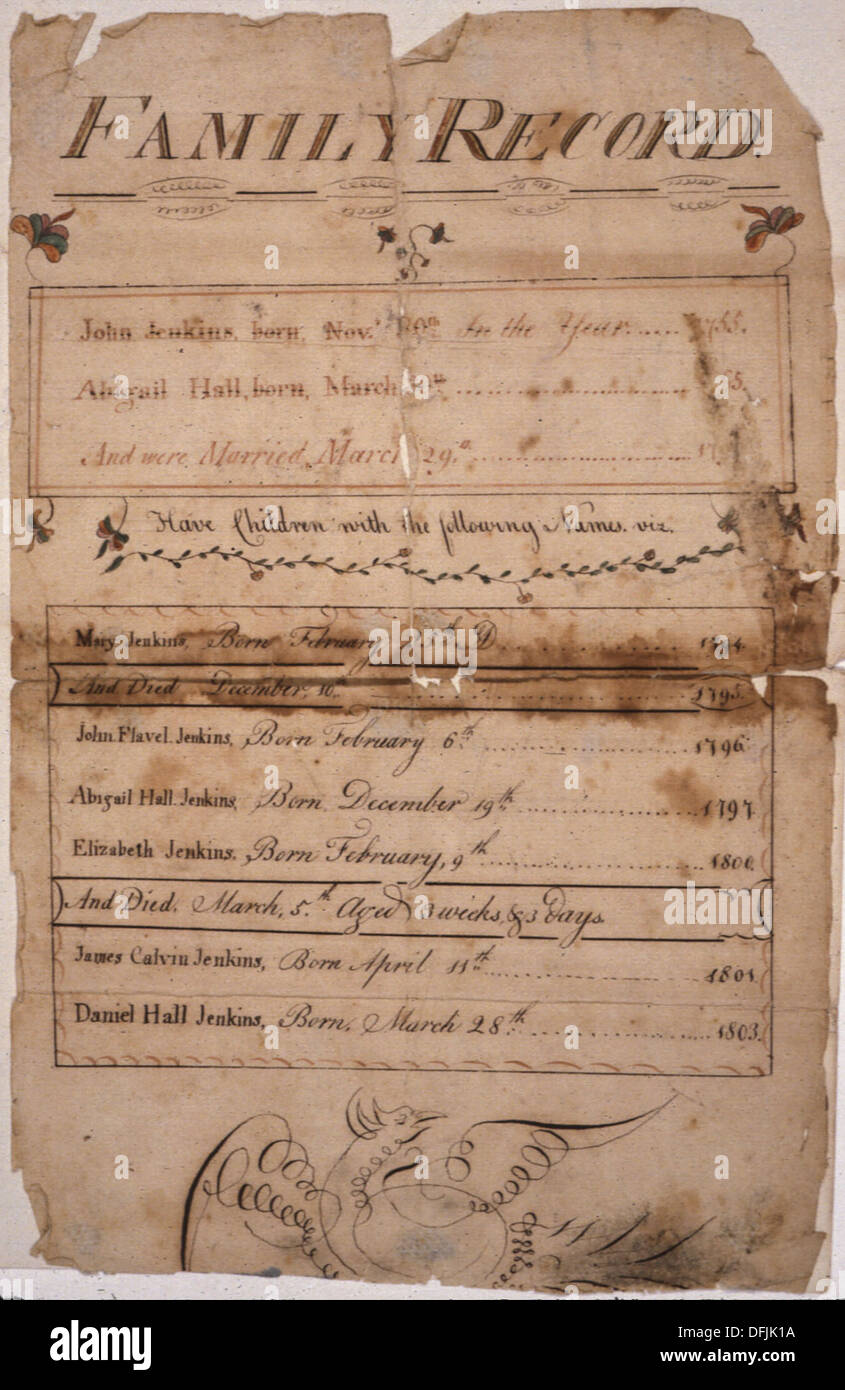 FAMILY RECORD.
John Jenkins, born, Nov.r In the Year ..... 1755.
Abigail Hall, born, March
And were Married, March 29.th
Have Children with the following Names. viz.
Mary Jenkins, Born February D 1794.
And Died December, 10th 1795.
John Flavel Jenkins, Born February 6th 1796
Abigail Hall Jenkins, Born December 19th 1797
Elizabeth Jenkins. Born February, 9th 1800.
And Died. March, 5.th Aged 3 weeks, & 3 days.
James Calvin Jenkins, Born April 11th 1801
Daniel Hall Jenkins, Born. March 28th 1803.
alamy
Image ID: DFJK1A
www.alamy.com